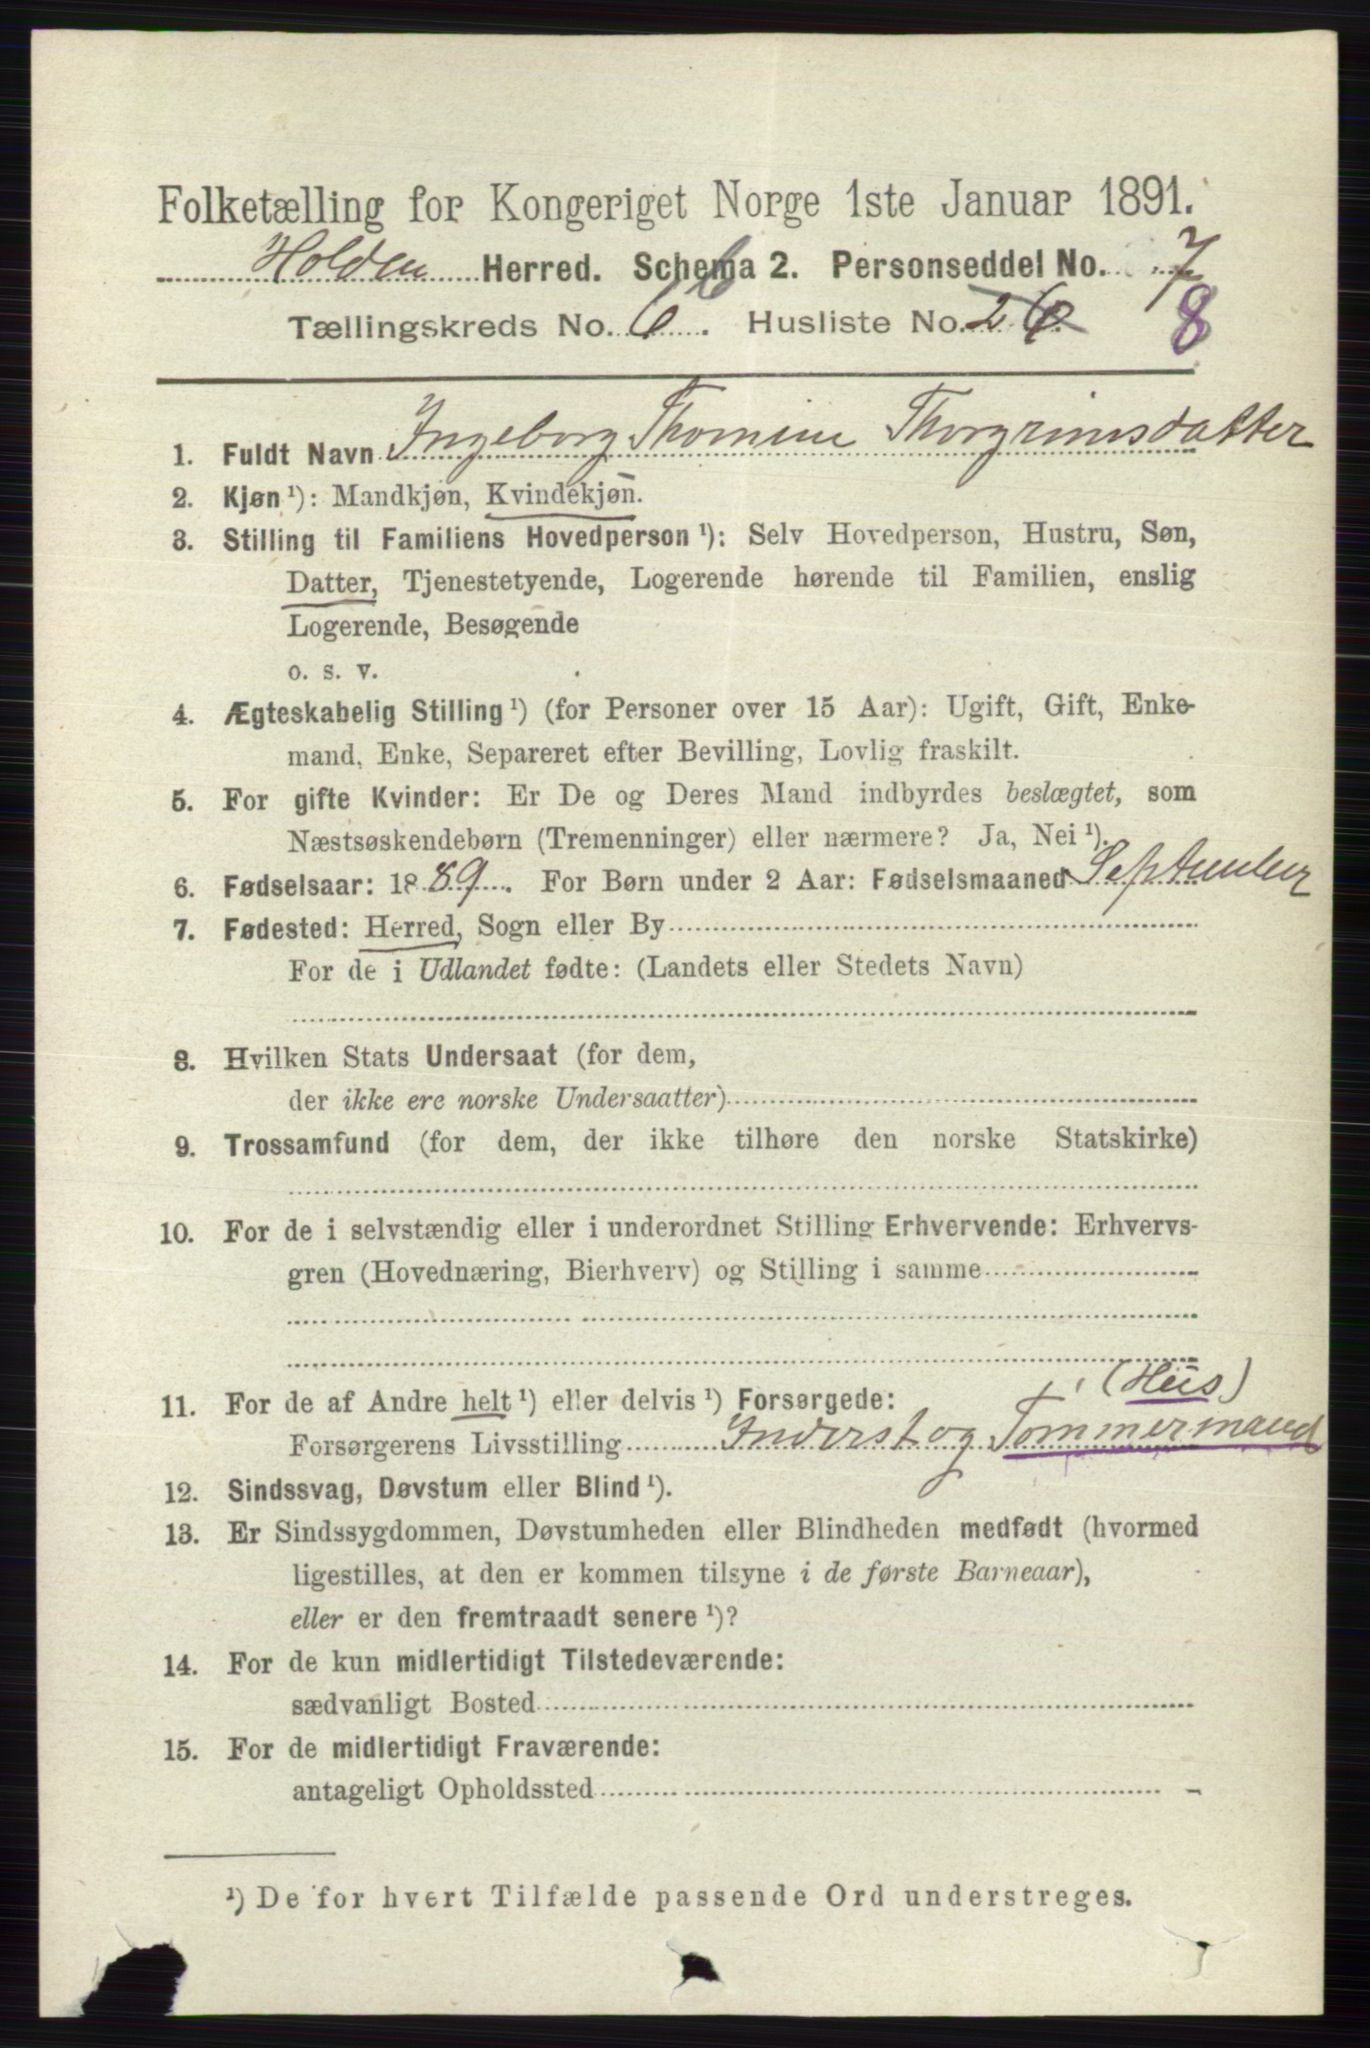 Folketælling for Kongeriget Norge 1ste Januar 1891.
Holden Herred. Schema 2. Personseddel No. 7
Tællingskreds No. 6. Husliste No. 26. 8
1. Fuldt Navn Ingeborg Thomine Thorgrimsdatter
2. Kjøn ¹): Mandkjøn, Kvindekjøn.
3. Stilling til Familiens Hovedperson ¹): Selv Hovedperson, Hustru, Søn,
Datter, Tjenestetyende, Logerende hørende til Familien, enslig
Logerende, Besøgende
o. s. v.
4. Ægteskabelig Stilling ¹) (for Personer over 15 Aar): Ugift, Gift, Enke-
mand, Enke, Separeret efter Bevilling, Lovlig fraskilt.
5. For gifte Kvinder: Er De og Deres Mand indbyrdes beslægtet, som
Næstsøskendebørn (Tremenninger) eller nærmere? Ja, Nei ¹).
6. Fødselsaar: 1889. For Børn under 2 Aar: Fødselsmaaned September
7. Fødested: Herred, Sogn eller By
For de i Udlandet fødte: (Landets eller Stedets Navn)
8. Hvilken Stats Undersaat (for dem,
der ikke ere norske Undersaatter)
9. Trossamfund (for dem, der ikke tilhøre den norske Statskirke)
10. For de i selvstændig eller i underordnet Stilling Erhvervende: Erhvervs-
gren (Hovednæring, Bierhverv) og Stilling i samme
(Hus)
11. For de af Andre helt ¹) eller delvis ¹) Forsørgede:
Forsørgerens Livsstilling Inderst og Tømmermand
12. Sindssvag, Døvstum eller Blind ¹).
13. Er Sindssygdommen, Døvstumheden eller Blindheden medfødt (hvormed
ligestilles, at den er kommen tilsyne i de første Barneaar),
eller er den fremtraadt senere ¹)?
14. For de kun midlertidigt Tilstedeværende:
sædvanligt Bosted
15. For de midlertidigt Fraværende:
antageligt Opholdssted
¹) De for hvert Tilfælde passende Ord understreges.